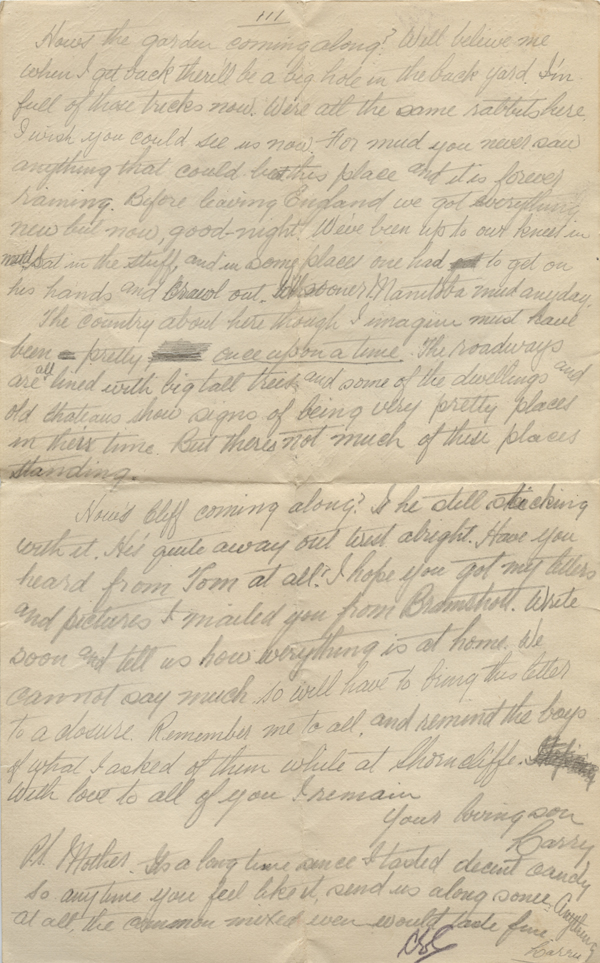 III
How's the garden coming along? Well believe me
when I get back there'll be a big hole in the back yard. I'm
full of those tricks now. We're all the same rabbits here.
I wish you could see us now. For mud you never saw
anything that could beat this place and it is forever
raining. Before leaving England we got everything
new but now, good-night. We've been up to our knees in
mud, sat in the stuff, and in some places one had to get on
his hands and crawl out. sooner Manitoba mud anyday.
The country about here though I imagine must have
been pretty, once upon a time. The roadways
are all lined with big tall trees and some of the dwellings and
old chateaus show signs of being very pretty places
in their time. But theres not much of these places
standing.
How's Cliff coming along? Is he still sticking
with it. He's quite away out west alright. Have you
heard from Tom at all? I hope you got my letters
and pictures I mailed you from Bramshott. Write
soon and tell us how everything is at home. We
cannot say much so will have to bring this letter
to a closure. Remember me to all, and remind the boys
of what I asked of them while at Shorncliffe.
With love to all of you I remain
Your loving son
Larry
P.S. Mother. Its a long time since I tasted decent candy
so anytime you feel like it, send us along some. Anything
at all, the common mixed even would taste fine.
Larry